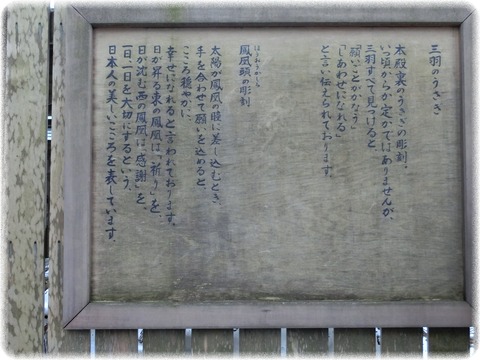 三羽のうさぎ
本殿裏のうさぎの彫刻。
いつ頃からか定かではありませんが、
三羽すべて見つけると
「願いごとがかなう」
「しあわせになれる」
と言い伝えられております。
鳳凰頭の彫刻
太陽が鳳凰の眼に差し込むとき、
手を合わせて願いを込めると、
こころ穏やかに、
幸せになれると言われております。
日が昇る東の鳳凰は「祈り」を、
日が沈む西の鳳凰は「感謝」を、
一日一日を大切にするという、
日本人の美しいこころを表しています。